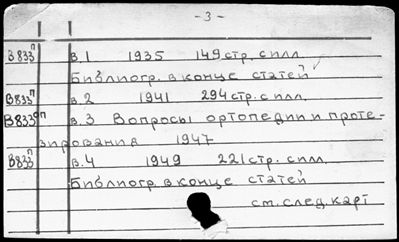 - 3 -
В833п в.1 1935 149 стр. с илл.
Библиогр. в конце статей
В833п в.2 1941 294 стр. с илл.
В833п в.3 Вопросы ортопедии и проте-
зирования 1947
В833п в.4 1949 221 стр. с илл.
Библиогр. в конце статей
см. след. карт